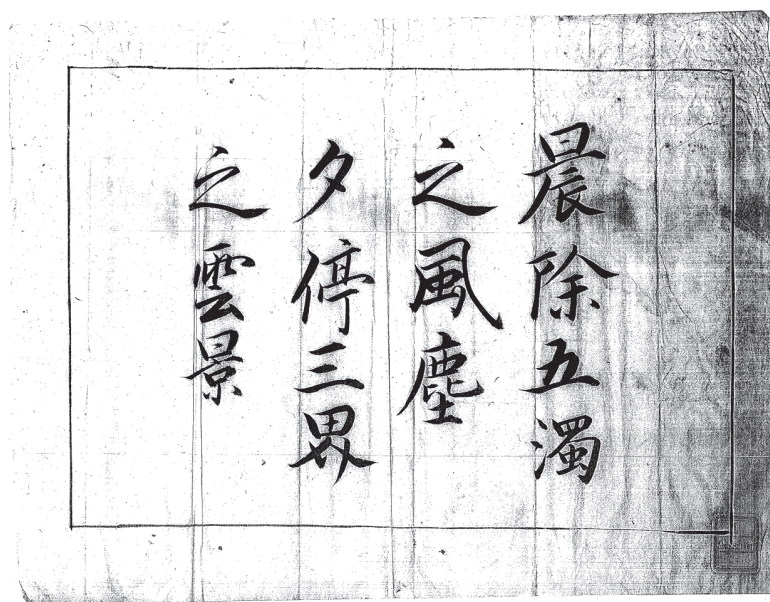 晨除五濁
之風塵
夕停三界
之雲景